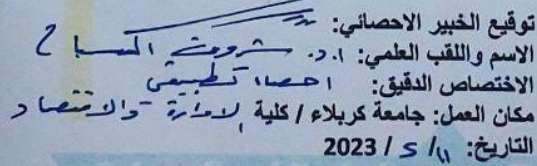 توقيع الخبير الاحصائي:
الاسم واللقب العلمي: ا.د. شروق
الاختصاص الدقيق: احصاء تطبيقي
مكان العمل: جامعة كربلاء / كلية الادارة والاقتصاد
التاريخ: ١١/ ٥ / 2023